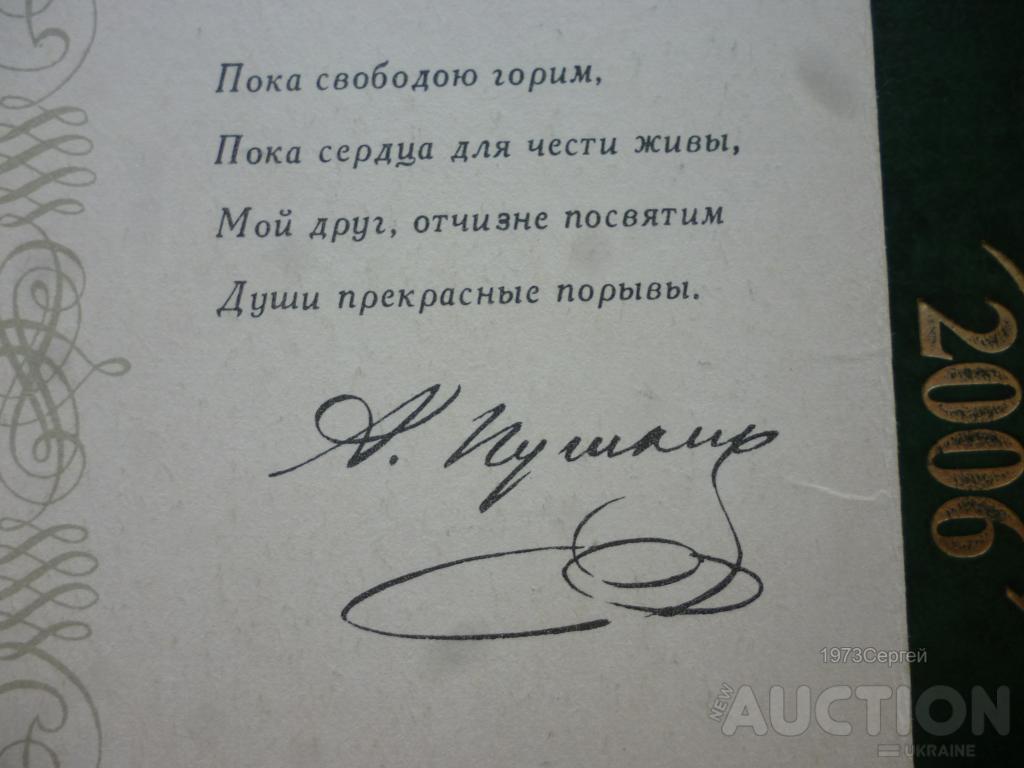 Пока свободою горим,
Пока сердца для чести живы,
Мой друг, отчизне посвятим
Души прекрасные порывы.
А. Пушкинъ
2006
1973Сергей
NEW
AUCTION
UKRAINE